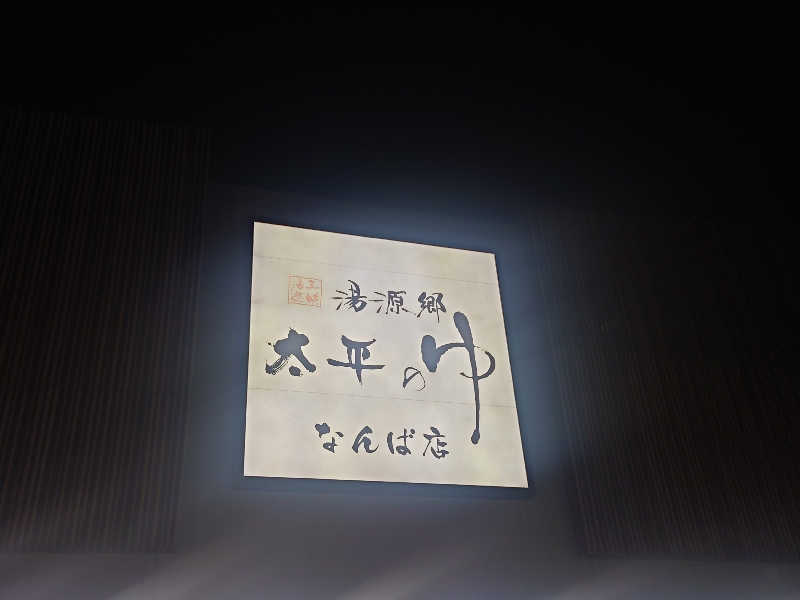 湯源郷
太平のゆ
なんば店